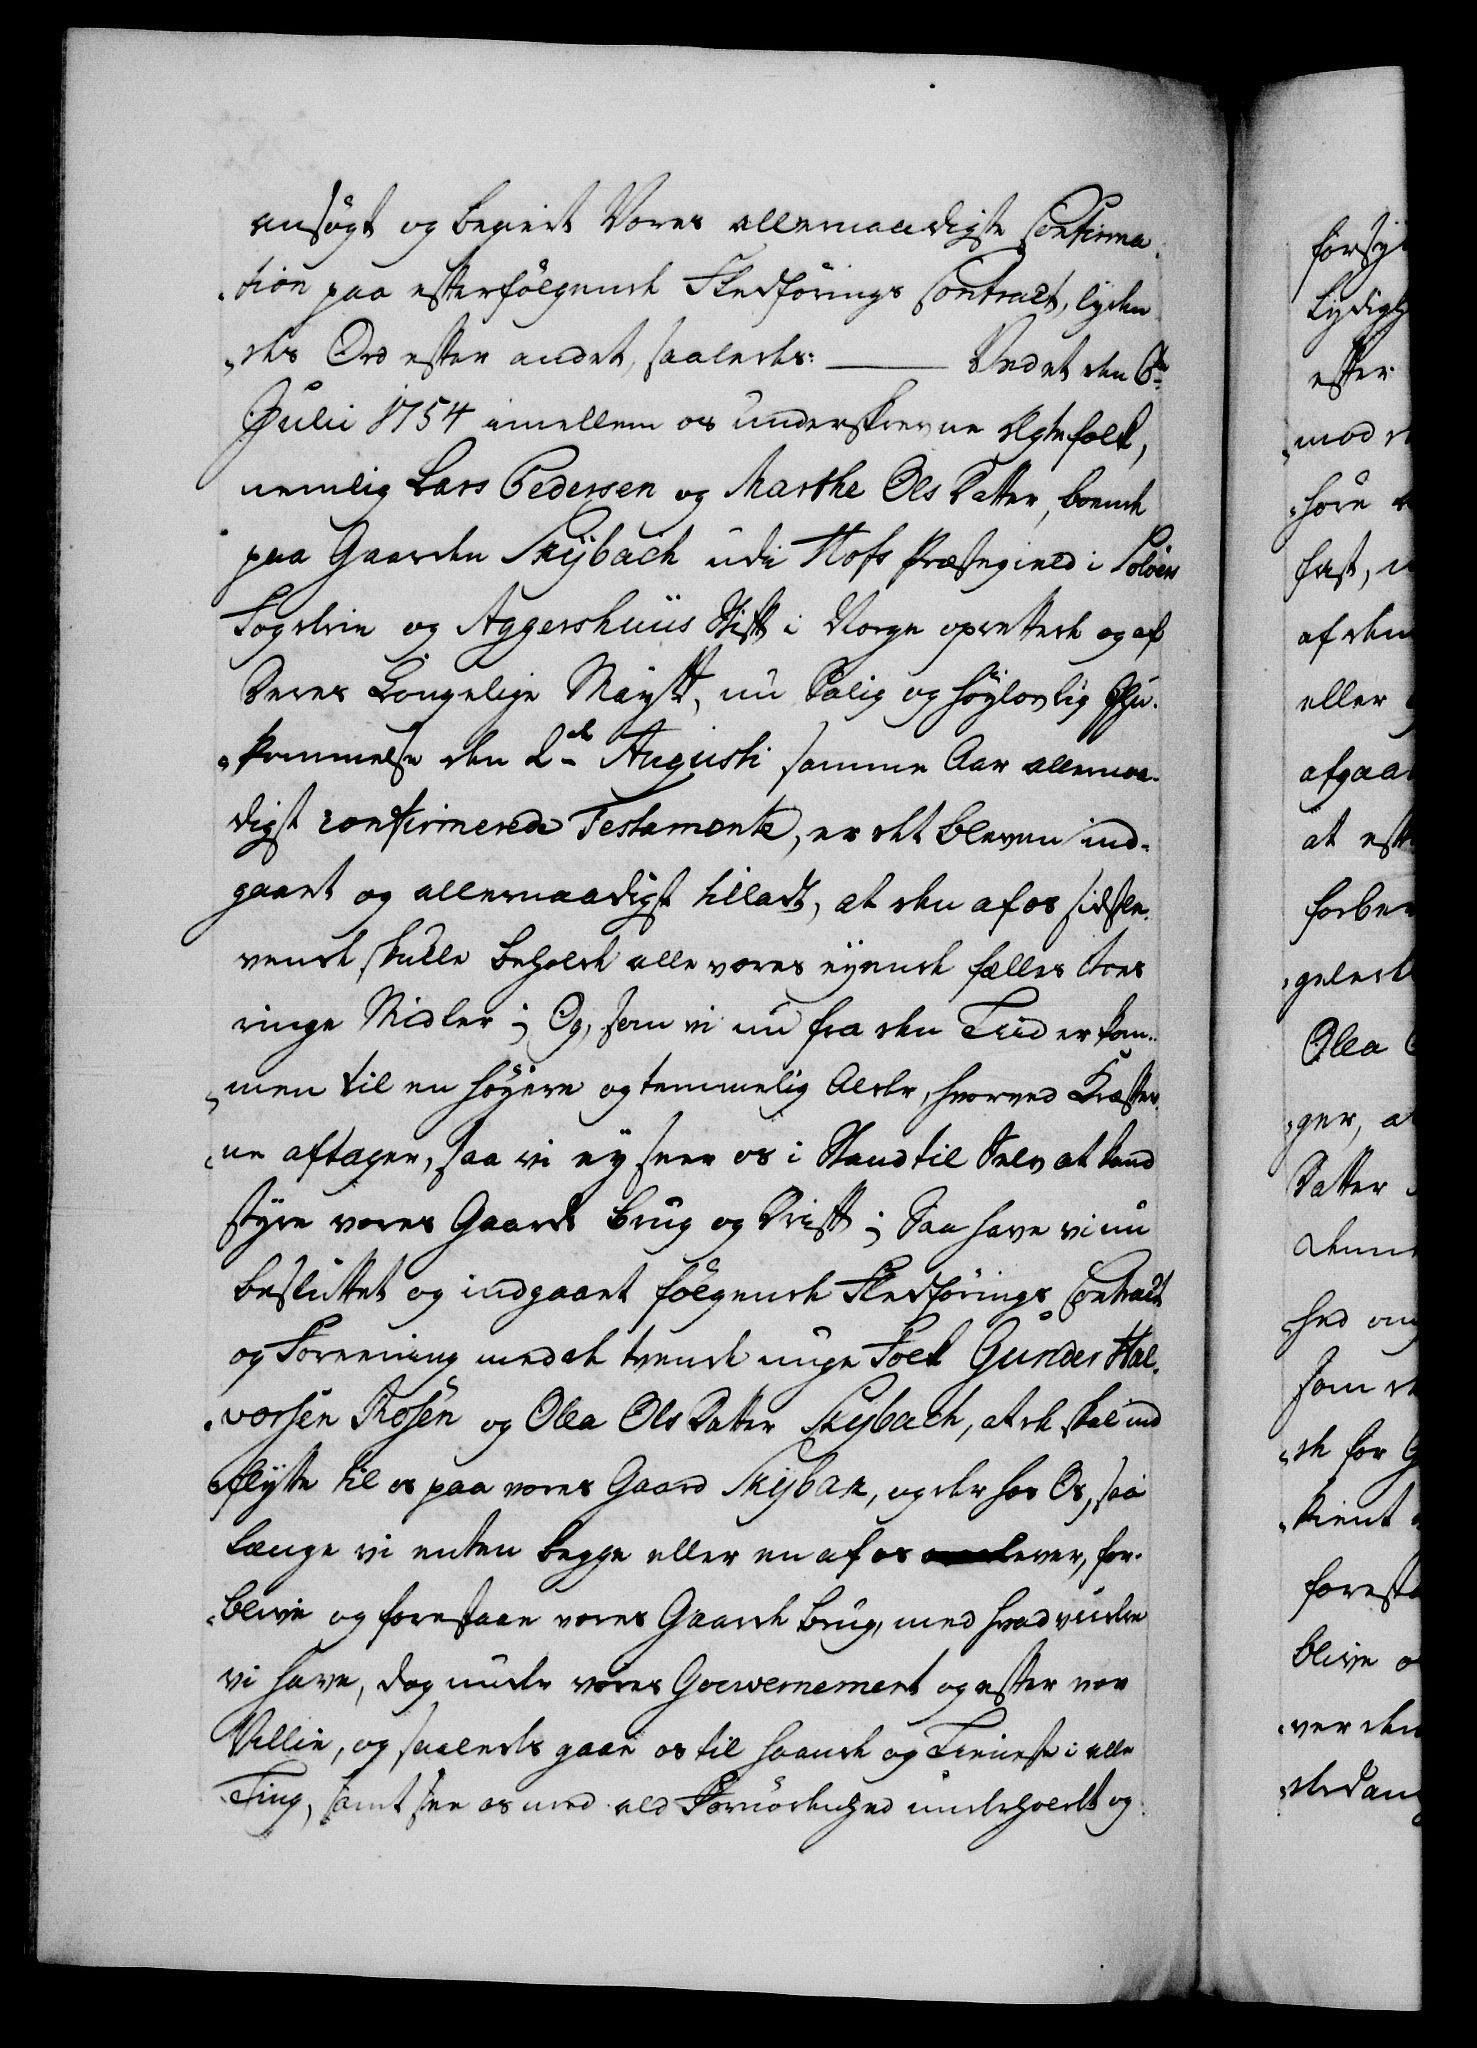 ansøgt og begiert Vores allernaadigste Confirma-
„tion paa efterfølgende Fledførings Contract, lyden
„des Ord efter andet, saaledes: —— Ved det den 6te
Julii 1754 imellem os underskrevne Ægtefolk,
nemlig Lars Pedersen og Marthe Ols Datter, boende
paa Gaarden Skÿbach udi Hofs Præstegield i Soløers
Fogderie og Aggershuus Stift i Norge oprettede og af
Deres Kongelige Mayst., nu Salig og høylovlig Ihu-
„kommelse den 2de Augusti samme Aar allernaa-
digst confirmerede Testamente, er det bleven ind-
gaaet og allernaadigst tilladt, at den af os sidstle-
vende skulle beholde alle vores eyende fælles
ringe Midler; Og, som vi nu fra den Tiid er kom-
„men til en høyere og temmelig Alder, hvorved Kræfter-
„ne aftager, saa vi ey seer os i Stand til Selv at kand
styre vores Gaards Brug og Drift; Saa have vi nu
besluttet og indgaaet følgende Fledførings Contract
og Foreening med de tvende unge Folk Gunder Hal-
„vorsen Rosen og Olea Ols Datter Skÿbach, at de skal ind
flytte til os paa vores Gaard Skÿbak, og der hos Os, saa
længe vi enten begge eller en af os lever, for-
„blive og forestaae vores Gaards Brug, med hvad viidere
vi have, dog under vores Gouvernement og efter vor
Villie, og saaledes gaae os til Haande og Tieneste i alle
Ting, samt see os med ald Fornødenhed underholdt og
forsy
Lydigh
efter
„mod
høre
fast,
af den
eller
afgaa
at eft
forbe
„gelede
Olea
ger, a
Datter
denne
hed om
som
„de for G
„kient
foresta
blive
„ver den